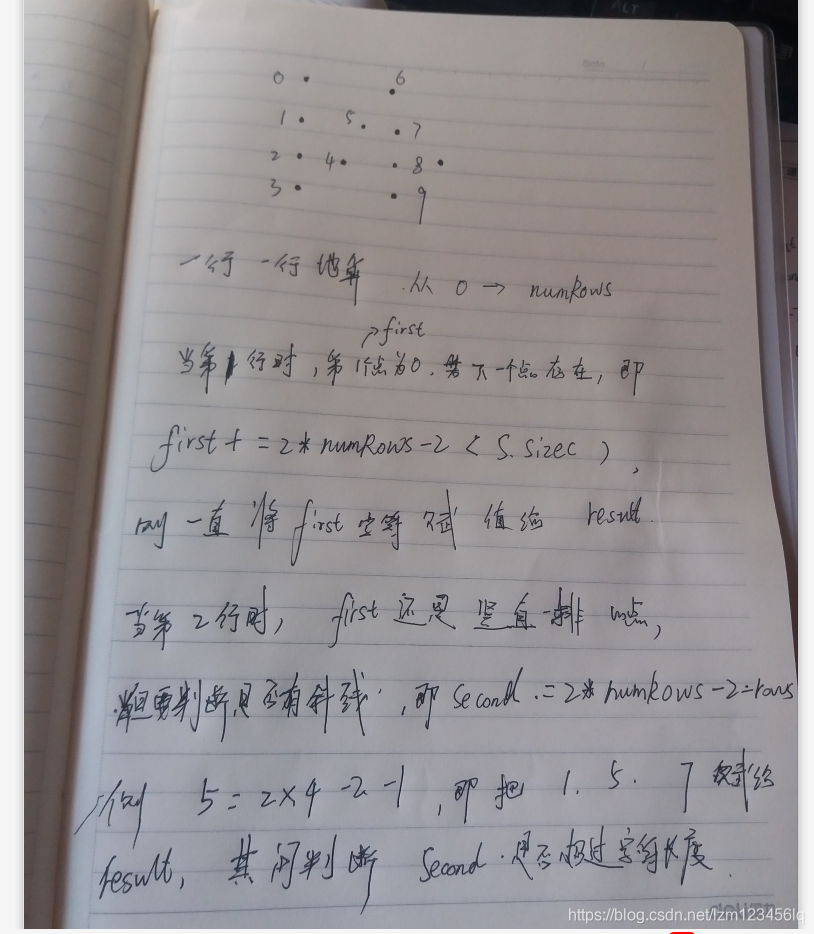 0 6
1 5 7
2 4 8
3 9
一行一行地算 从 0 → numRows
first
当第1行时,第1个点为0.若下一个点存在,即
first + = 2* numRows-2 < S.size( ),
则一直将first字符赋值给 result.
当第2行时, first还是竖直一排的点,
但要判断是否有斜线,即second.=2* numRows-2-rows
例 5=2×4-2-1,即把 1. 5. 7 赋给
result, 其间判断 Second.是否超过字符长度.
https://blog.csdn.net/lzm123456lq